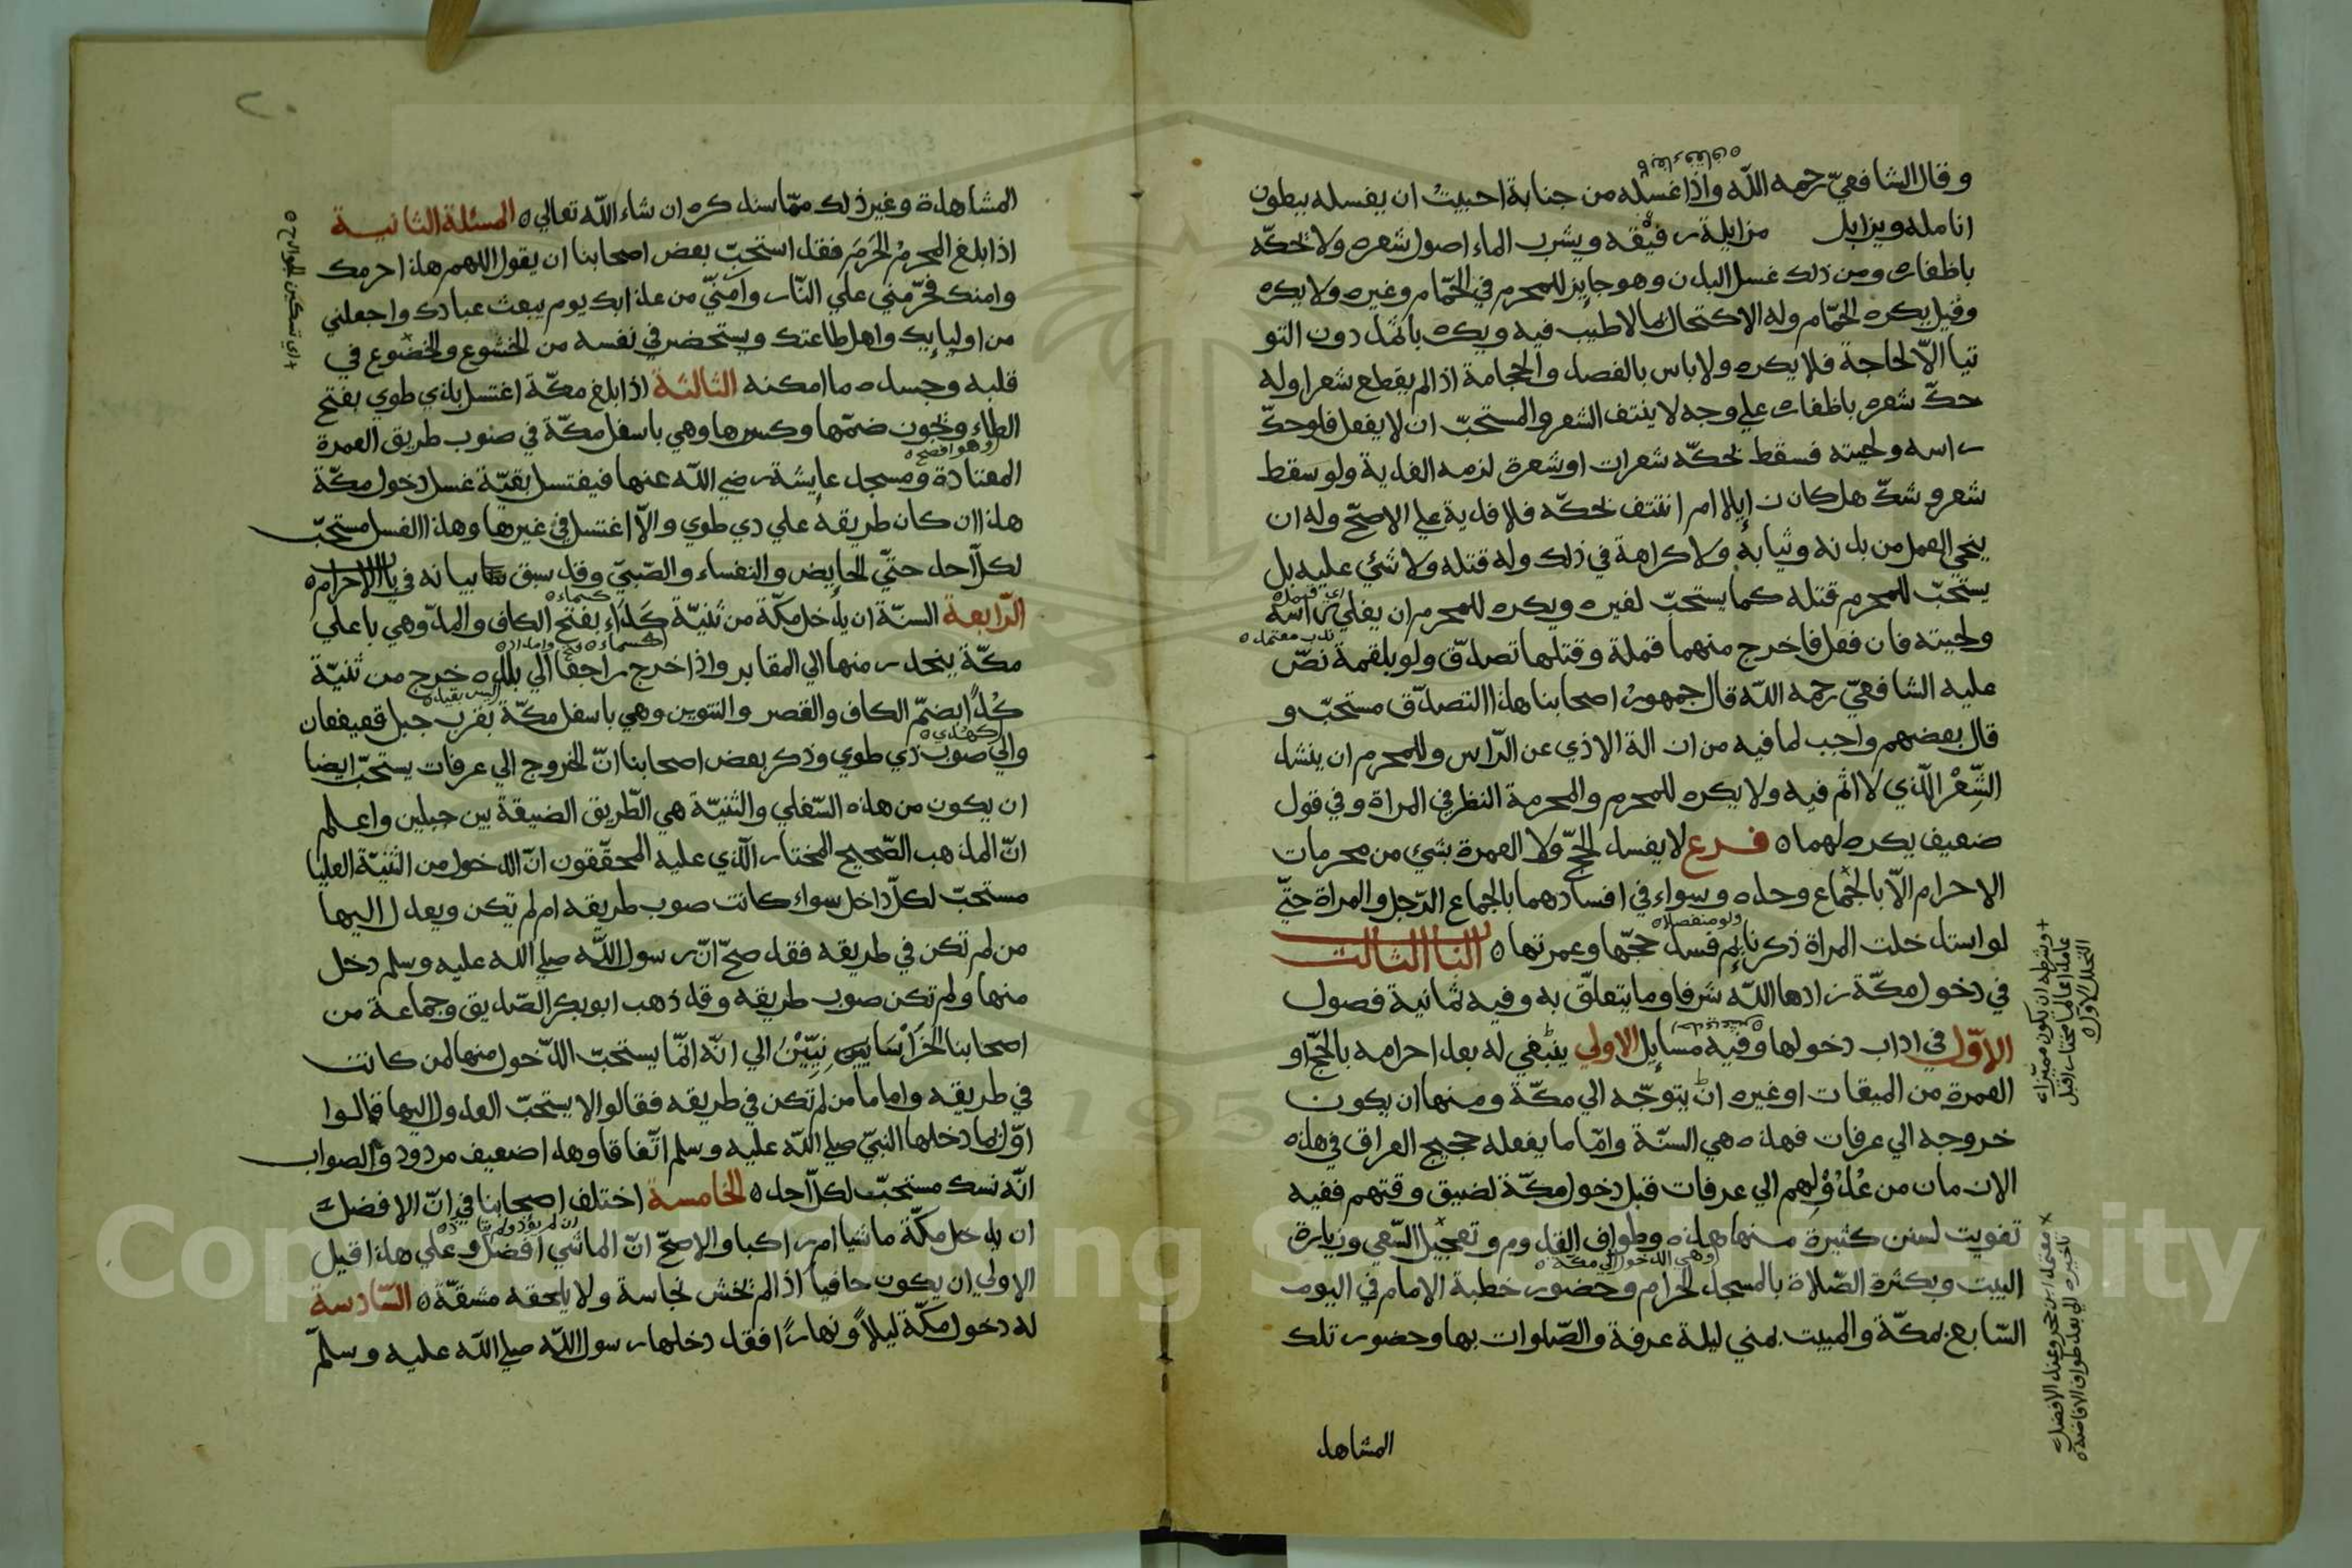 وقال الشافعيّ رحمه الله واذا غسله من جنابة احببتُ ان يغسله ببطون
انامله ويزايل مزايلة رفيقه ويشرب الماء اصول شعره ولا يحكّه
باظفاره ومن ذلك غسل البدن وهو جايز للمحرم في الحمّام وغيره ولا يكره
وقيل يكره الحمّام وله الاكتحال بما لا طيب فيه ويكره باثمد دون التو
تيا الاّ لحاجة فلا يكره ولا باس بالفصد والحجامة اذا لم يقطع شعرا وله
حكّ شعره باظفاره علي وجه لا ينتف الشعر والمستحبّ ان لا يفعل فلو حكّ
راسه ولحيته فسقط بحكّه شعرات او شعرة لزمه الفدية ولو سقط
شعر وشكّ هل كان زايلا ام انتتف بحكّه فلا فدية علي الاصحّ وله ان
ينحي القمل من بدنه وثيابه ولا كراهة في ذلك وله قتله ولا شئي عليه بل
يستحبّ للمحرم قتله كما يستحبّ لغيره ويكره للمحرم ان يفلي راسه
ولحيته فان فعل فاخرج منهما قملة وقتلها تصدّق ولو بلقمة نصّ
ندب معتمد
عليه الشافعيّ رحمه الله قال جمهورُ اصحابنا هذا التصدّق مستحبّ و
قال بعضهم واجب لما فيه من ازالة الاذي عن الرّاس وللمحرم ان ينشد
الشِّعْر الّذي لا اثم فيه ولا يكره للمحرم والمحرمة النظر في المراة وفي قول
ضعيف يكره لهما فرع لا يفسد الحجّ ولا العمرة بشئ من محرمات
الاحرام الاّ بالجماع وحده وسواء في افسادهما بالجماع الرّجل والمراة حتّي
ولو منفصلا
لو استدخلت المراة ذكر نايم فسد حجّها وعمرتها الباب الثالث
في دخول مكّة زادها الله شرفا وما يتعلّق به وفيه ثمانية فصول
الاوّل في اداب دخولها وفيه مسايل الاولي ينبغي له بعد احرامه بالحجّ او
العمرة من الميقات او غيره ان يتوجّه الي مكّة ومنها ان يكون
خروجه الي عرفات فهذه هي السنّة وامّا ما يفعله حجيج العراق في هذه
الازمان من عُدُوْلِهم الي عرفات قبل دخول مكّة لضيق وقتهم ففيه
تفويت لسنن كثيرة منها هذه وطواف القدوم وتعجيل السّعي وزيارة
وهي الدخول الي مكة
البيت وبكثرة الصّلاة بالمسجد الحرام وحضور خطبة الامام في اليوم
السّابع بمكّة والمبيت بمني ليلة عرفة والصّلوات بها وحضور تلك
المشاهد
وشرطه ان يكون مميّزا
عامدا عالما مختارا قبل
التحلل الاول
معتمد ابن حجر وعند الافضل
تاخيره الي بعد طواف الافاضة
المشاهدة وغير ذلك ممّا سنذكره ان شاء الله تعالي المسئلة الثانية
اذا بلغ المحرمُ الحَرَمَ فقد استحبّ بعض اصحابنا ان يقول اللهم هذا حرمك
وامنك فحرّمني علي النّار وآمنّي من عذابك يوم يبعث عبادك واجعلني
من اوليايك واهل طاعتك ويستحضر في نفسه من الخشوع والخضوع في
اي تسكين الجوارح
قلبه وجسده ما امكنه الثالثة اذا بلغ مكّة اغتسل بذي طوي بفتح
الطاء ويجوز ضمّها وكسرها وهي باسفل مكّة في صوب طريق العمرة
وهو افصح
المعتادة ومسجد عايشة رضي الله عنها فيغتسل بقيّة غسل دخول مكّة
هذا ان كان طريقه علي ذي طوي والاّ اغتسل في غيرها وهذا الغسل مستحبّ
لكلّ احد حتّي الحايض والنفساء والصّبيّ وقد سبق بيانه في باب الاحرام
الرّابعة السنّة ان يدخل مكّة من ثنيّة كَدَاء بفتح الكاف والمدّ وهي باعلي
مكّة ينحدر منها الي المقابر واذا خرج راجعا الي بلده خرج من ثنيّة
كُدًا بضمّ الكاف والقصر والتنوين وهي باسفل مكّة بقرب جبل قعيقعان
والي صوب ذي طوي وذكر بعض اصحابنا انّ الخروج الي عرفات يستحبّ ايضا
ان يكون من هذه السّفلي والثنيّة هي الطّريق الضيقة بين جبلين واعلم
انّ المذهب الصّحيح المختار الّذي عليه المحقّقون انّ الدخول من الثنيّة العليا
مستحبّ لكلّ داخل سواء كانت صوب طريقه ام لم تكن ويعدل اليها
من لم تكن في طريقه فقد صحّ انّ رسول الله صلي الله عليه وسلم دخل
منها ولم تكن صوب طريقه وقد ذهب ابو بكر الصّديق وجماعة من
اصحابنا الخَرَاسَانِيِّيْن الي انّه انّما يستحبّ الدّخول منها لمن كانت
في طريقه واما من لم تكن في طريقه فقالوا لا يستحبّ العدول اليها قالوا
وانّما دخلها النبيّ صلي الله عليه وسلم اتّفاقا وهذا ضعيف مردود والصواب
انّه نسك مستحبّ لكلّ احد الخامسة اختلف اصحابنا في انّ الافضل
ان يدخل مكّة ماشيا ام راكبا والاصحّ انّ الماشي افضل وعلي هذا قيل
الاولي ان يكون حافيا اذا لم يخش نجاسة ولا يلحقه مشقّة السّادسة
له دخول مكّة ليلاً ونهارًا فقد دخلها رسول الله صلي الله عليه وسلّم
Copyright © King Saud University
195